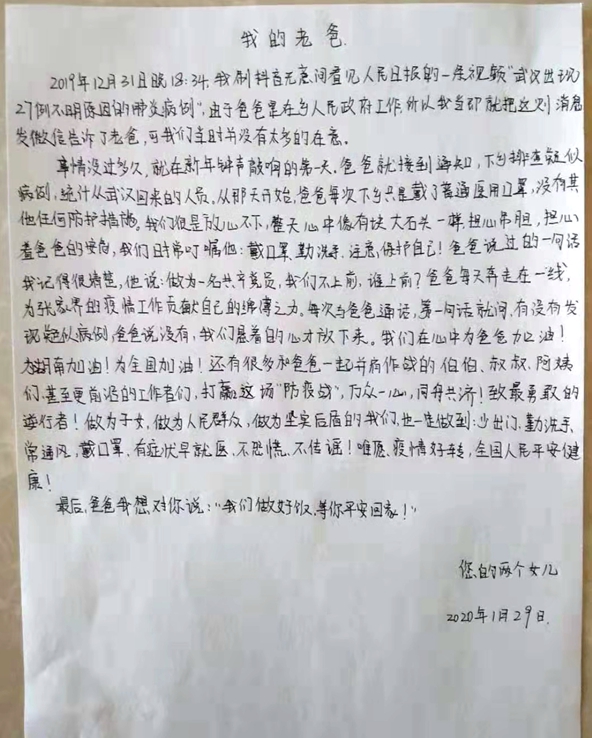 我的老爸.
2019年12月31日晚18:34,我刷抖音无意间看见人民日报的一条视频"武汉出现
27例不明原因的肺炎病例",由于爸爸是在乡人民政府工作,所以我当即就把这则消息
发微信告诉了老爸,可我们当时并没有太多的在意。
事情没过多久,就在新年钟声敲响的第一天,爸爸就接到通知,下乡排查疑似
病例,统计从武汉回来的人员,从那天开始,爸爸每次下乡只是戴了普通医用口罩,没有其
他任何防护措施。我们很是放心不下,整天心中像有块大石头一样,担心吊胆,担心
着爸爸的安危,我们日常叮嘱他:戴口罩、勤洗手、注意保护自己!爸爸说过的一句话
我记得很清楚,他说:做为一名共产党员,我们不上前,谁上前?爸爸每天奔走在一线,
为张家界的疫情工作贡献自己的绵薄之力。每次与爸爸通话,第一句话就问,有没有发
现疑似病例,爸爸说没有,我们悬着的心才放下来。我们在心中为爸爸加油!
为湖南加油!为全国加油!还有很多和爸爸一起并肩作战的伯伯、叔叔、阿姨
们,甚至更前沿的工作者们,打赢这场"防疫战",万众一心,同舟共济!致最勇敢的
逆行者!做为子女,做为人民群众,做为坚实后盾的我们,也一定做到:少出门、勤洗手、
常通风,戴口罩、有症状早就医、不恐慌、不传谣!唯愿,疫情好转,全国人民平安健
康!
最后,爸爸我想对你说:"我们做好饭,等你平安回家!"
您的两个女儿
2020年1月29日.